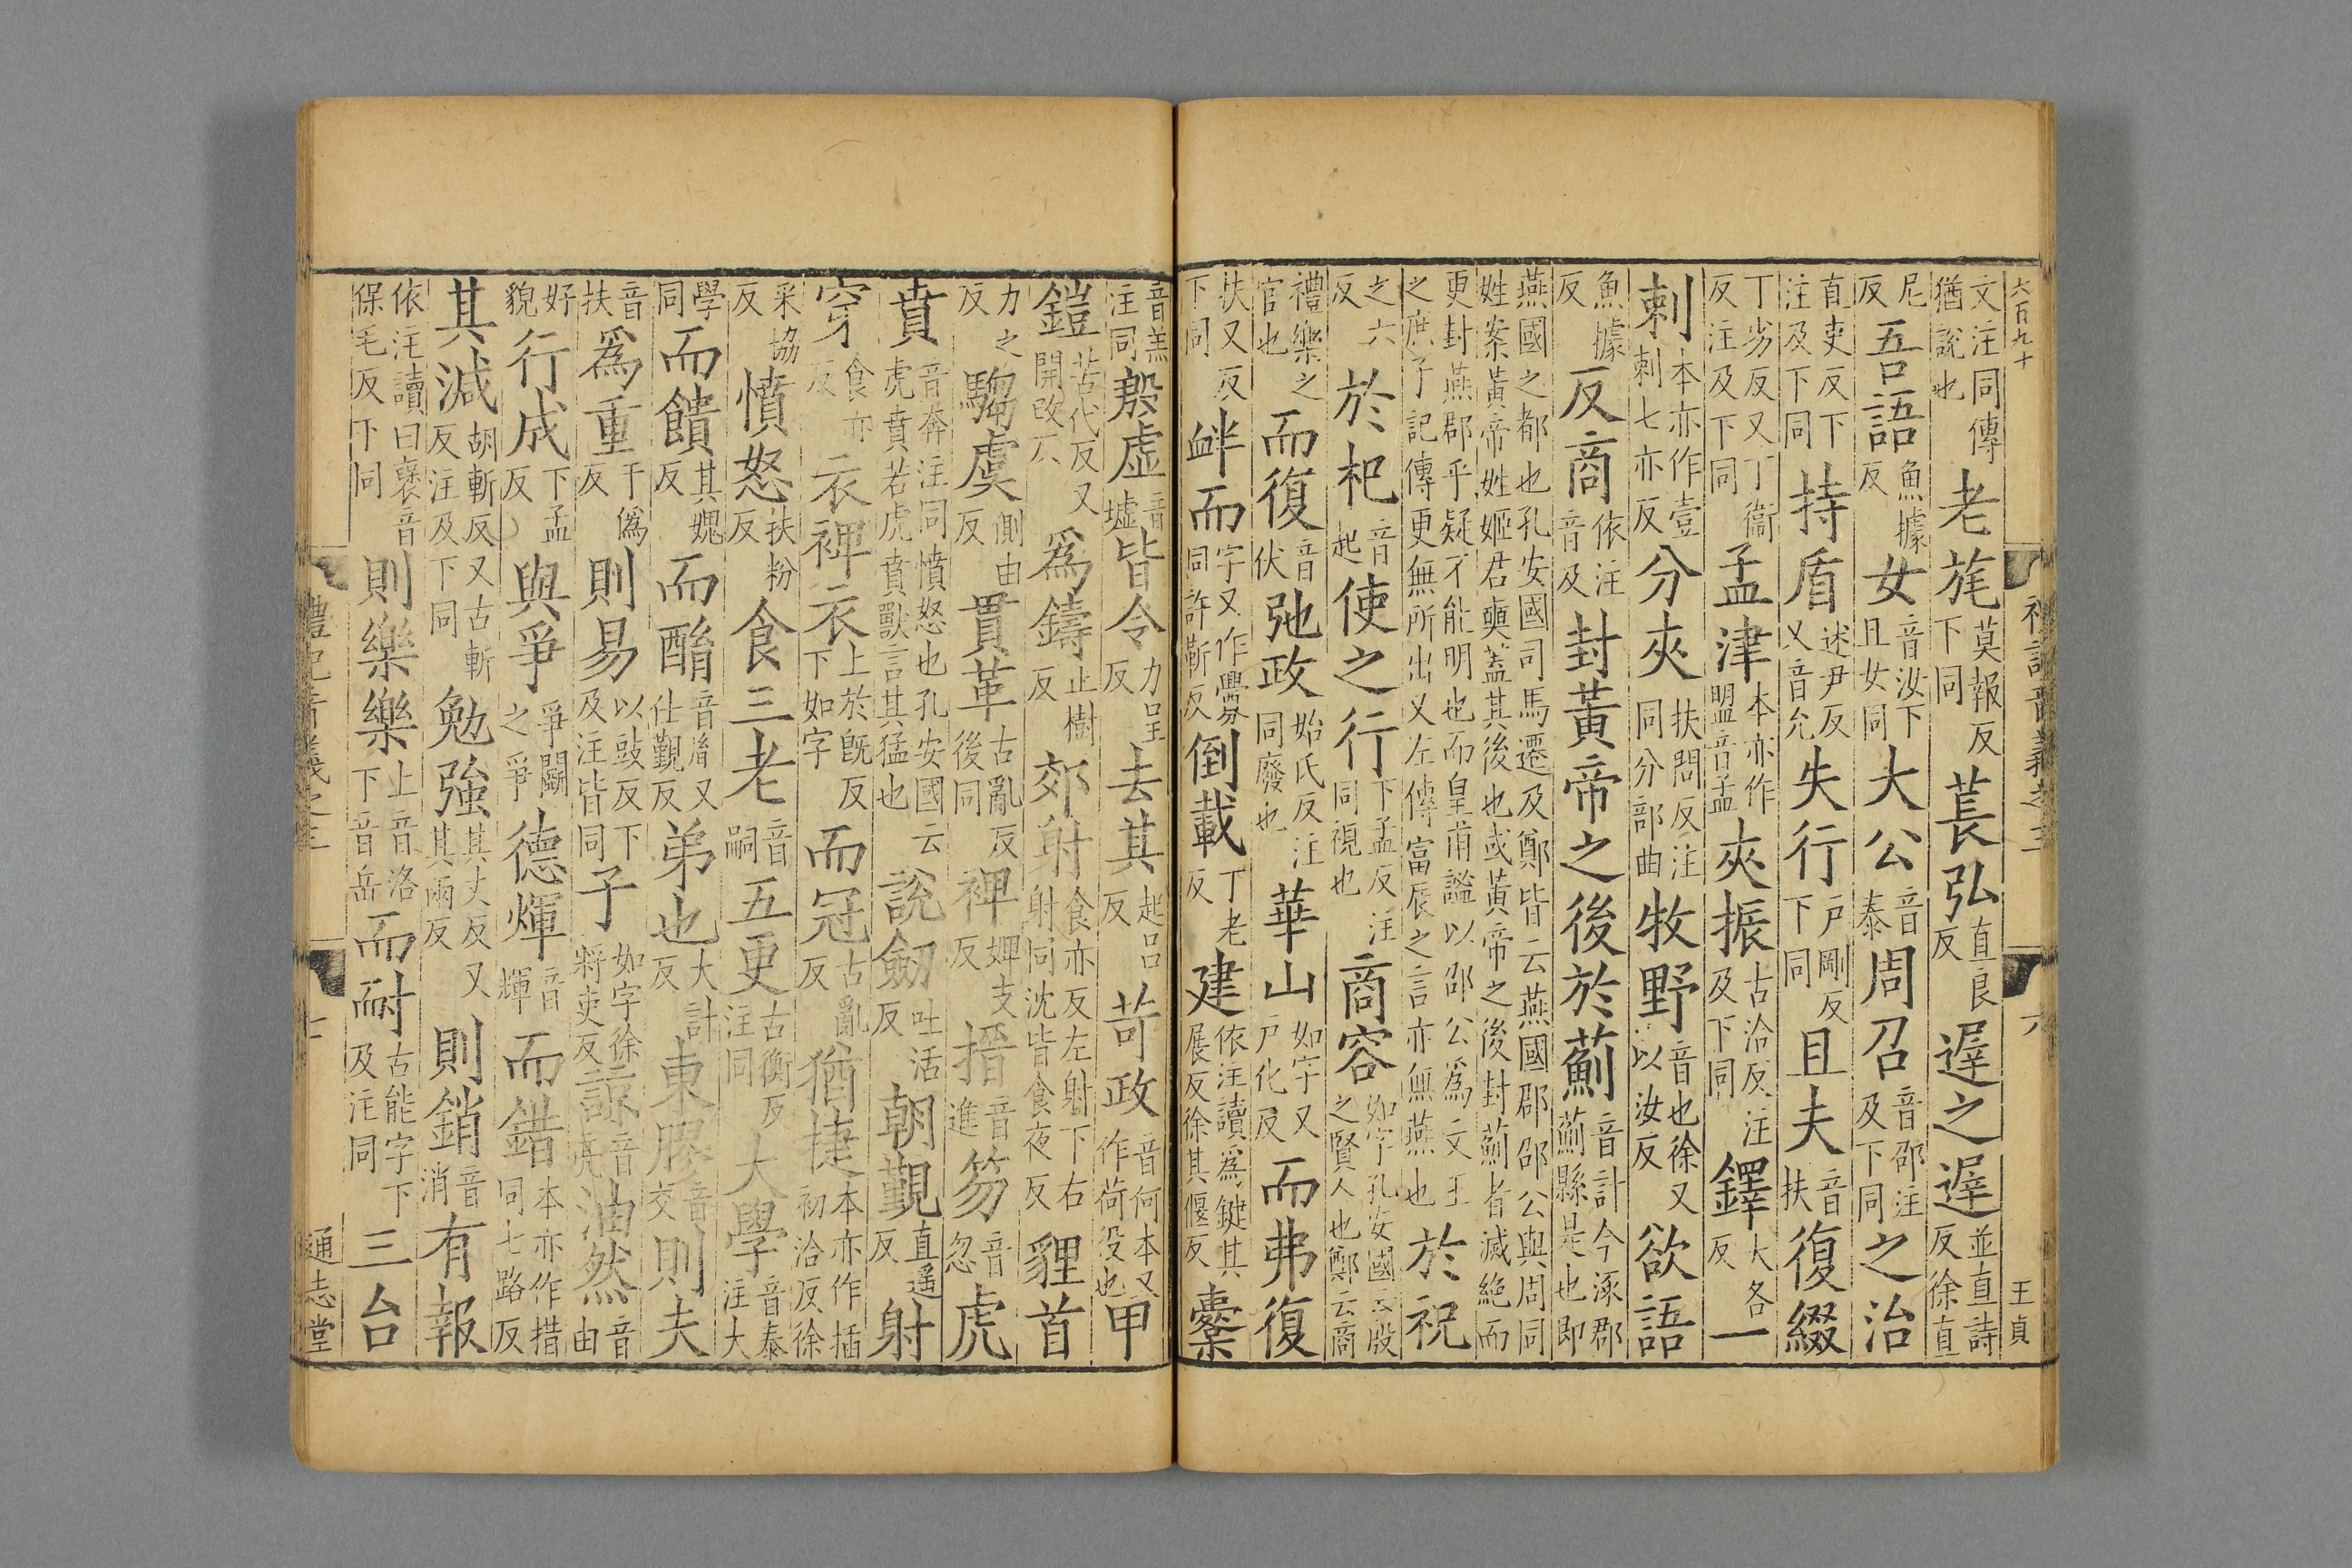 六百九十　禮記音義之三　六　王真
文注同傳猶說也老旄莫報反下同萇弘直良反遲之遲並直詩反徐直
尼反吾語魚據反女音汝下且女同大公音泰周召音邵注及下同之治
直吏反下注及下同持盾述尹反又音允失行戶剛反下同且夫音扶復綴
丁劣反又丁衞反注及下同孟津本亦作盟音孟夾振古洽反注及下同鐸大各反一
刺本亦作壹刺七亦反分夾扶問反注同分部曲牧野音也徐又以汝反欲語
魚據反反商依注音及封黃帝之後於薊音計今涿郡薊縣是也即
燕國之都也孔安國司馬遷及鄭皆云燕國郡邵公與周同姓案黃帝姓姬君奭蓋其後也或黃帝之後封薊者滅絕而
更封燕郡乎疑不能明也而皇甫謐以邵公爲文王之庶子記傳更無所出又左傳富辰之言亦無燕也於祝
之六反於杞音起使之行下孟反注同視也商容如字孔安國云殷之賢人也鄭云商
禮樂之官也而復音伏弛政始氏反注同廢也華山如字又戶化反而弗復
扶又反下同衅而字又作釁同許靳反倒載丁老反建依注讀爲鍵其展反徐其偃反櫜
音羔注同殷虛音墟皆令力呈反去其起呂反苛政音何本又作荷役也甲
鎧苦代反又開改反爲鑄止樹反郊射食亦反左射下右射同沈皆食夜反貍首
力之反騶虞側由反貫革古亂反後同裨婢支反搢音進笏音忽虎
賁音奔注同憤怒也孔安國云虎賁若虎賁獸言其猛也說劒吐活反朝覲直遥反射
穿食亦反衣裨衣上於旣反下如字而冠古亂反猶捷本亦作插初洽反徐
采協反憤怒扶粉反食三老音嗣五更古衡反注同大學音泰注大
學同而饋其媿反而酳音胤又仕覲反弟也大計反東膠音交則夫
音扶爲重于僞反則易以豉反下及注皆同子如字徐將吏反諒音亮油然音由
好貌行成下孟反與爭爭鬭之爭德煇音輝而錯本亦作措同七路反
其減胡斬反又古斬反注及下同勉強其丈反又其兩反則銷音消有報
依注讀曰襃音保毛反下同則樂樂上音洛下音岳而耐古能字下及注同三台
禮記音義之三　七　通志堂